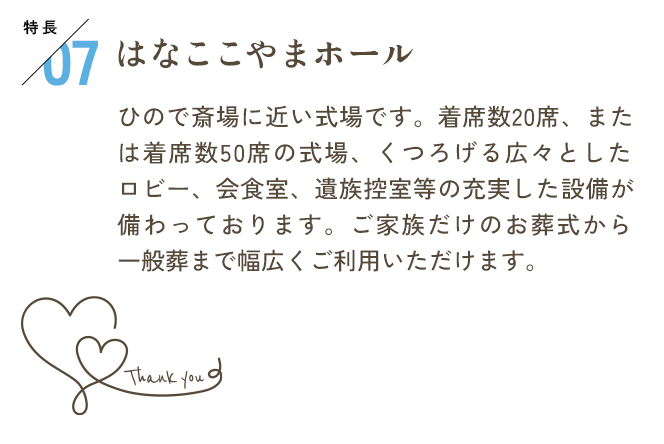 特長
07
はなここやまホール
ひので斎場に近い式場です。着席数20席、また
は着席数50席の式場、くつろげる広々とした
ロビー、会食室、遺族控室等の充実した設備が
備わっております。ご家族だけのお葬式から
一般葬まで幅広くご利用いただけます。
Thank you